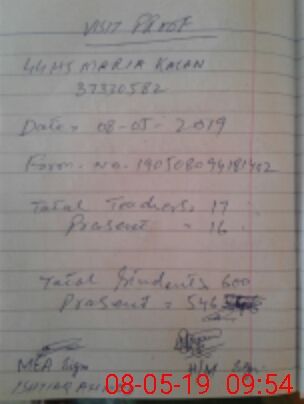 VISIT PROOF
GGHS MARIA KALAN
37330582
Date = 08-05-2019
Form. No. 190508094181452
Total Teachers, 17
Present = 16
Total Students 600
Present = 546
MEA Sign H/M Sign
ISHTIAQ
08-05-19 09:54